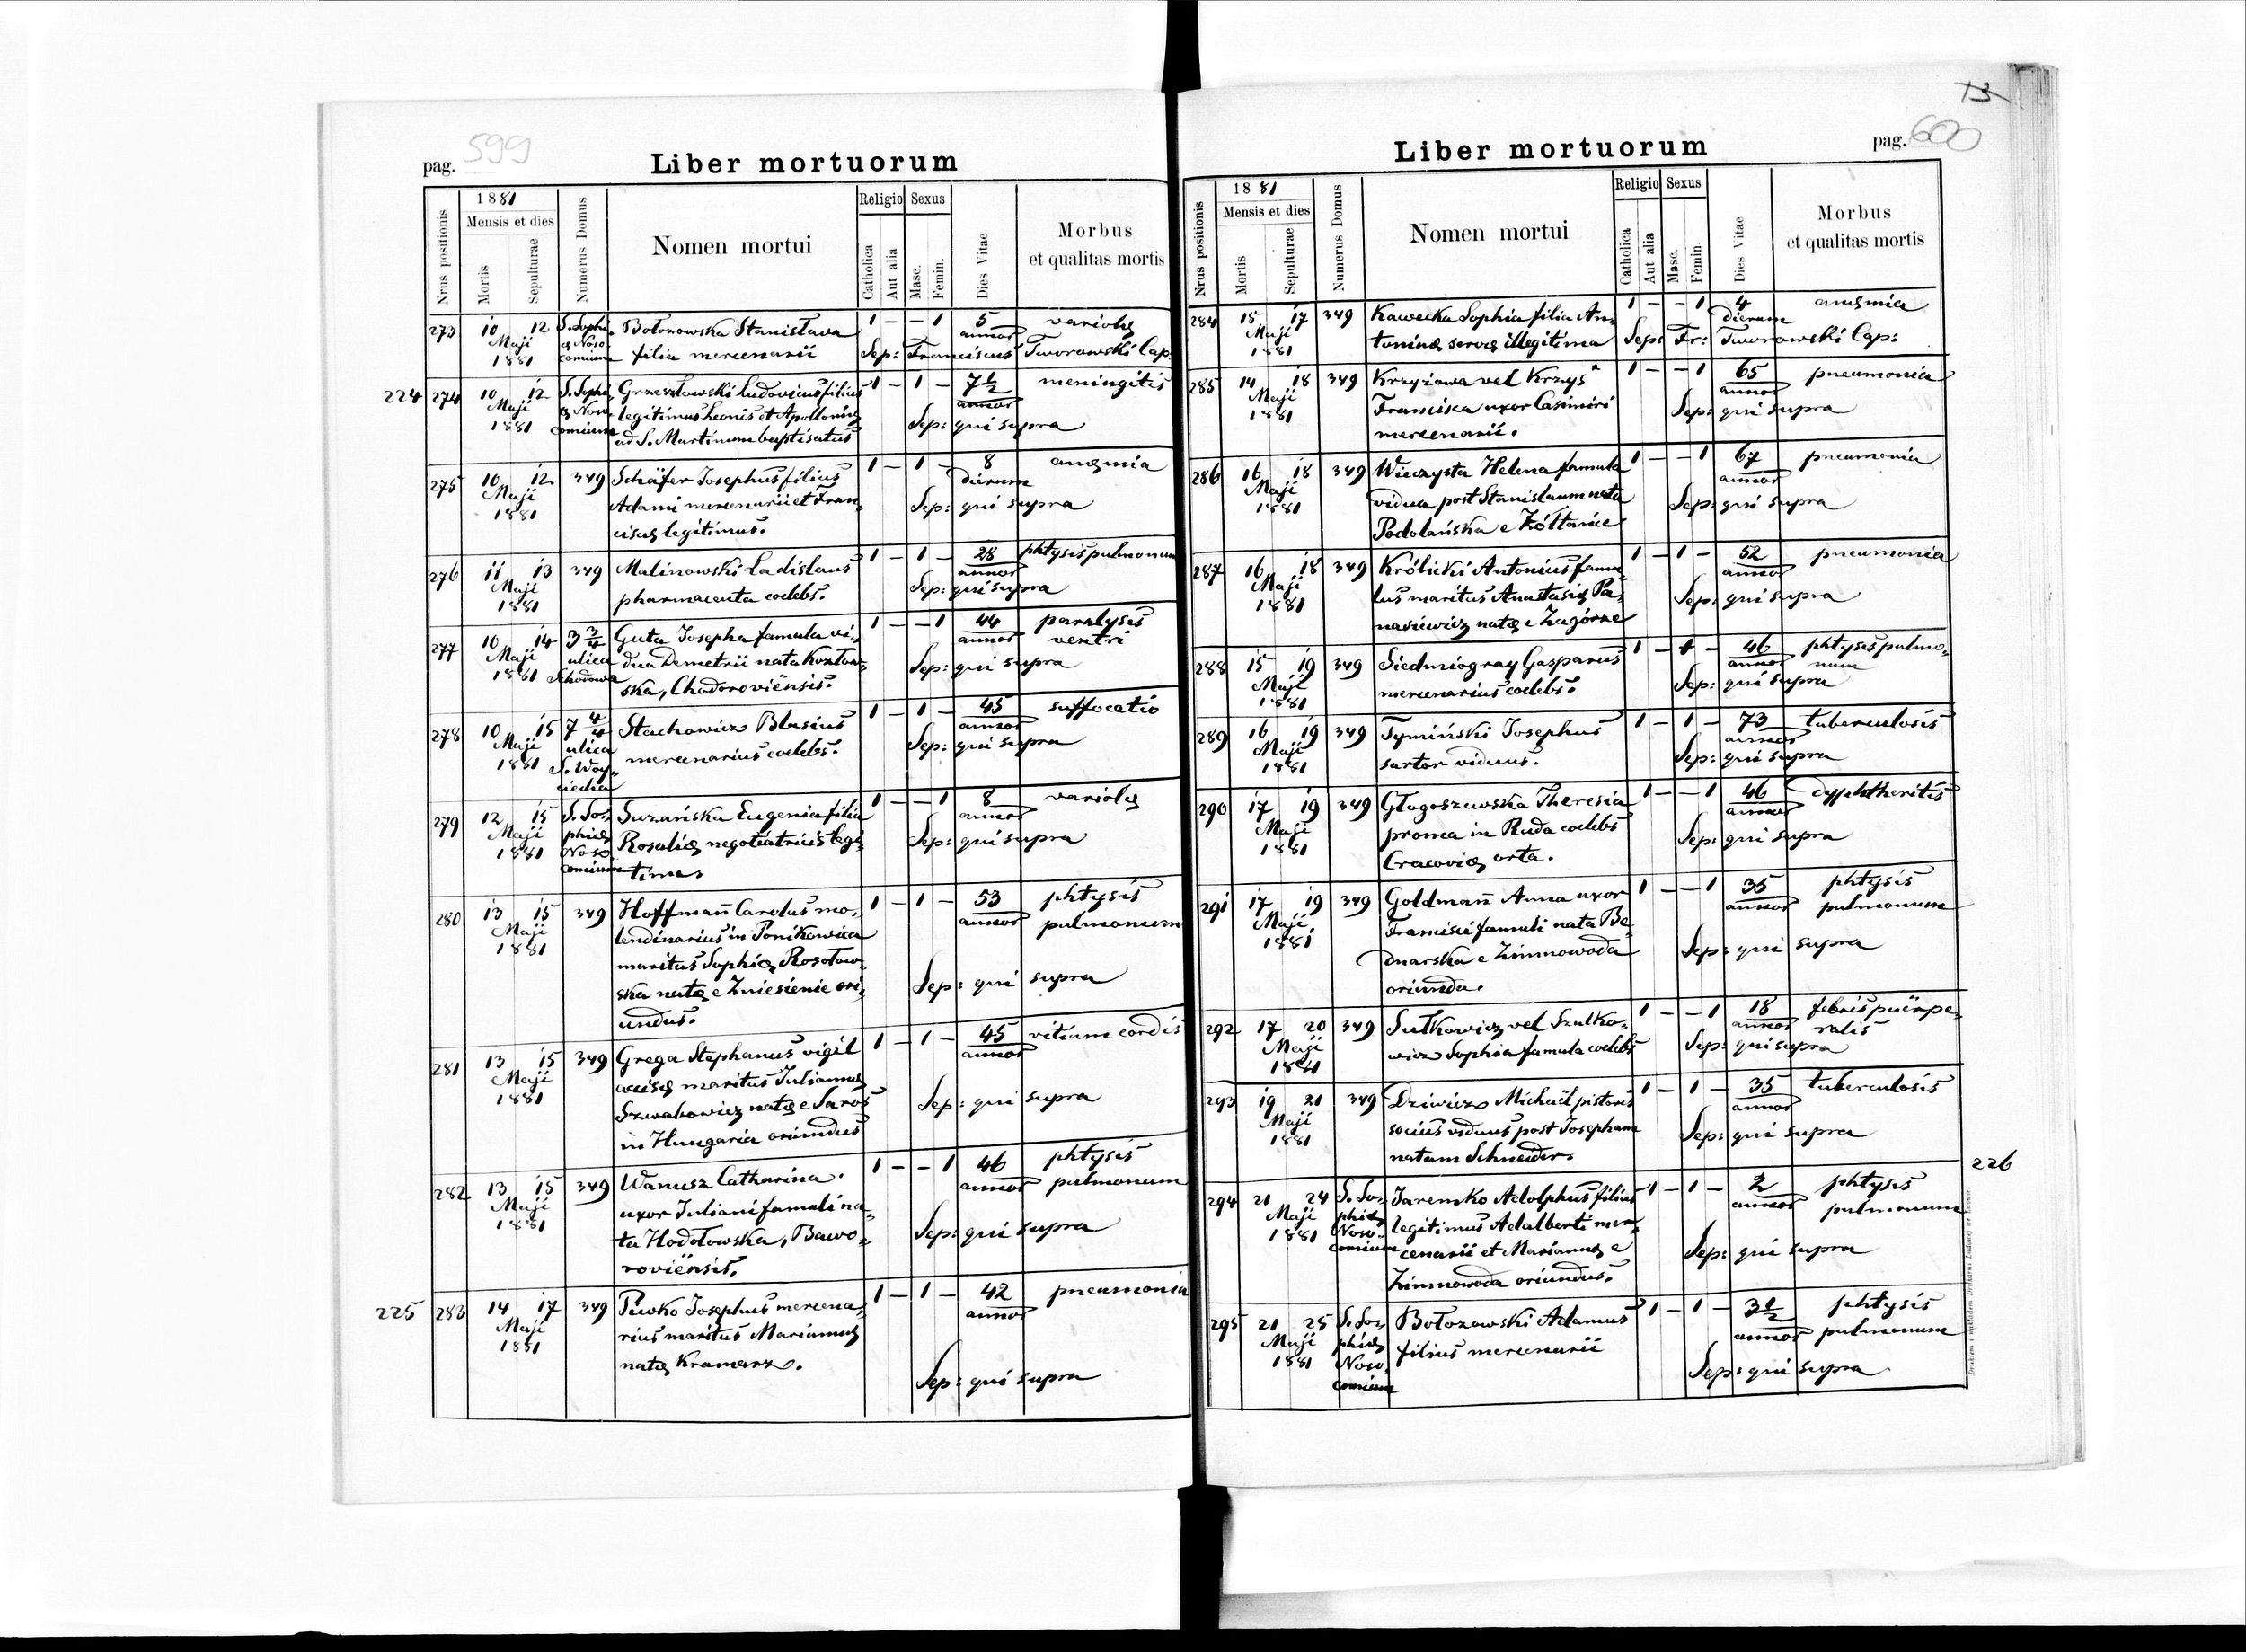 pag. 599
Liber mortuorum
Nrus positionis
1881
Mensis et dies
Mortis
Sepulturae
Numerus Domus
Nomen mortui
Religio
Catholica
Aut alia
Sexus
Masc.
Femin.
Dies Vitae
Morbus
et qualitas mortis
273 10 12 S. Sophi- Bołozowska Stanisława 1 – – 1 5 variolę
Maji ę Noso- filia mercenarii annor
1881 comium Sep: Franciscus Tworowski Cap.
224 274 10 12 S. Sophi- Grzeszłowski Ludovicus filius 1 – 1 – 7 1/2 meningitis
Maji ę Noso- legitimus Leonis et Apollonię annor
1881 comium ad S. Martinum baptisatus Sep: qui supra
275 10 12 349 Schäfer Josephus filius 1 – 1 – 8 anęmia
Maji Adami mercenarii et Fran- dierum
1881 ciscę legitimus. Sep: qui supra
276 11 13 349 Malinowski Ladislaus 1 – 1 – 28 phtysis pulmonum
Maji pharmaceuta coelebs. annor
1881 Sep: qui supra
277 10 14 3 3/4 Guta Josepha famula vi- 1 – – 1 44 paralysis
Maji ulica dua Demetrii nata Kozłow- annor ventri
1881 Schodowa ska, Chodoroviënsis. Sep: qui supra
278 10 15 7 4/4 Stachowicz Blasius 1 – 1 – 45 suffocatio
Maji ulica mercenarius coelebs. annor
1881 S. Woy- Sep: qui supra
ciecha
279 12 15 S. So- Suzańska Eugenia filia 1 – – 1 8 variolę
Maji phię Rosalię negotiatricis legi- annor
1881 Noso- tima Sep: qui supra
comium
280 13 15 349 Hoffmañ Carolus mo- 1 – 1 – 53 phtysis
Maji lendinarius in Ponikowica annor pulmonum
1881 maritus Sophię Rosołow-
ska natę e Zniesienie ori- Sep: qui supra
undus.
281 13 15 349 Grega Stephanus vigil 1 – 1 – 45 vitium cordis
Maji accisę maritus Juliannę annor
1881 Szwabowicz natę e Saros Sep: qui supra
in Hungaria oriundus
282 13 15 349 Wanusz Catharina 1 – – 1 46 phtysis
Maji uxor Juliani famuli na- annor pulmonum
1881 ta Hodołowska, Bawo- Sep: qui supra
roviënsis.
225 283 14 17 349 Piwko Josephus mercena- 1 – 1 – 42 pneumonia
Maji rius maritus Mariannę annor
1881 natę Kramarz.
Sep: qui supra
13
Liber mortuorum
pag. 600
Nrus positionis
1881
Mensis et dies
Mortis
Sepulturae
Numerus Domus
Nomen mortui
Religio
Catholica
Aut alia
Sexus
Masc.
Femin.
Dies Vitae
Morbus
et qualitas mortis
284 15 17 349 Kawecka Sophia filia An- 1 – – 1 4 anęmia
Maji toninę servę illegitima dierum
1881 Sep: Fr: Tworowski Cap:
285 14 18 349 Krzyżowa vel Krzyś 1 – – 1 65 pneumonia
Maji Francisca uxor Casimiri annor
1881 mercenarii. Sep: qui supra
286 16 18 349 Wieczysta Helena famula 1 – – 1 67 pneumonia
Maji vidua post Stanislaum nata annor
1881 Podolańska e Żółtańce Sep: qui supra
287 16 18 349 Królicki Antonius famu- 1 – 1 – 52 pneumonia
Maji lus maritus Anastasię Pa- annor
1881 nasiewicz natę e Zagórze Sep: qui supra
288 15 19 349 Siedmiogray Gasparus 1 – 1 – 46 phtysis pulmo-
Maji mercenarius coelebs. annor num
1881 Sep: qui supra
289 16 19 349 Tymiński Josephus 1 – 1 – 73 tuberculosis
Maji sartor viduus. annor
1881 Sep: qui supra
290 17 19 349 Głogoszewska Theresia 1 – – 1 46 dyphtheritis
Maji proma in Ruda coelebs annor
1881 Cracovię orta. Sep: qui supra
291 17 19 349 Goldmañ Anna uxor 1 – – 1 35 phtysis
Maji Francisci famuli nata Be- annor pulmonum
1881 dnarska e Zimnowoda Sep: qui supra
oriunda.
292 17 20 349 Sułkowicz vel Szulko- 1 – – 1 18 febris puërpe-
Maji wicz Sophia famula coelebs annor ralis
1881 Sep: qui supra
293 19 21 349 Dziwicz Michaël pistoris 1 – 1 – 35 tuberculosis
Maji socius viduus post Josepham annor
1881 natam Schneider. Sep: qui supra
226
294 21 24 S. So- Jaremko Adolphus filius 1 – 1 – 2 phtysis
Maji phię legitimus Adalberti mer- annor pulmonum
1881 Noso- cenarii et Mariannę e Sep: qui supra
comium Zimnowoda oriundus.
295 21 25 S. So- Bołozowski Adamus 1 – 1 – 3 1/2 phtysis
Maji phię filius mercenarii annor pulmonum
1881 Noso- Sep: qui supra
comium